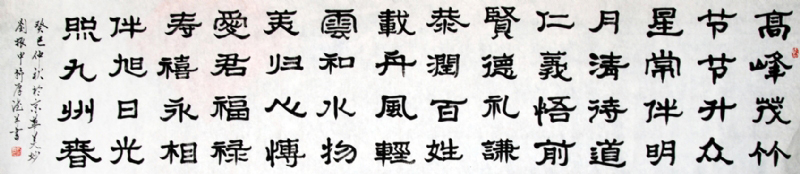 高峰茂竹
节节升众
星常伴明
月清待道
仁義悟前
賢德礼謙
恭潤百姓
載舟風輕
雲和水物
美归心愽
愛君福禄
寿禧永相
伴旭日光
照九州春
癸巳仲秋於京華
劉振甲書